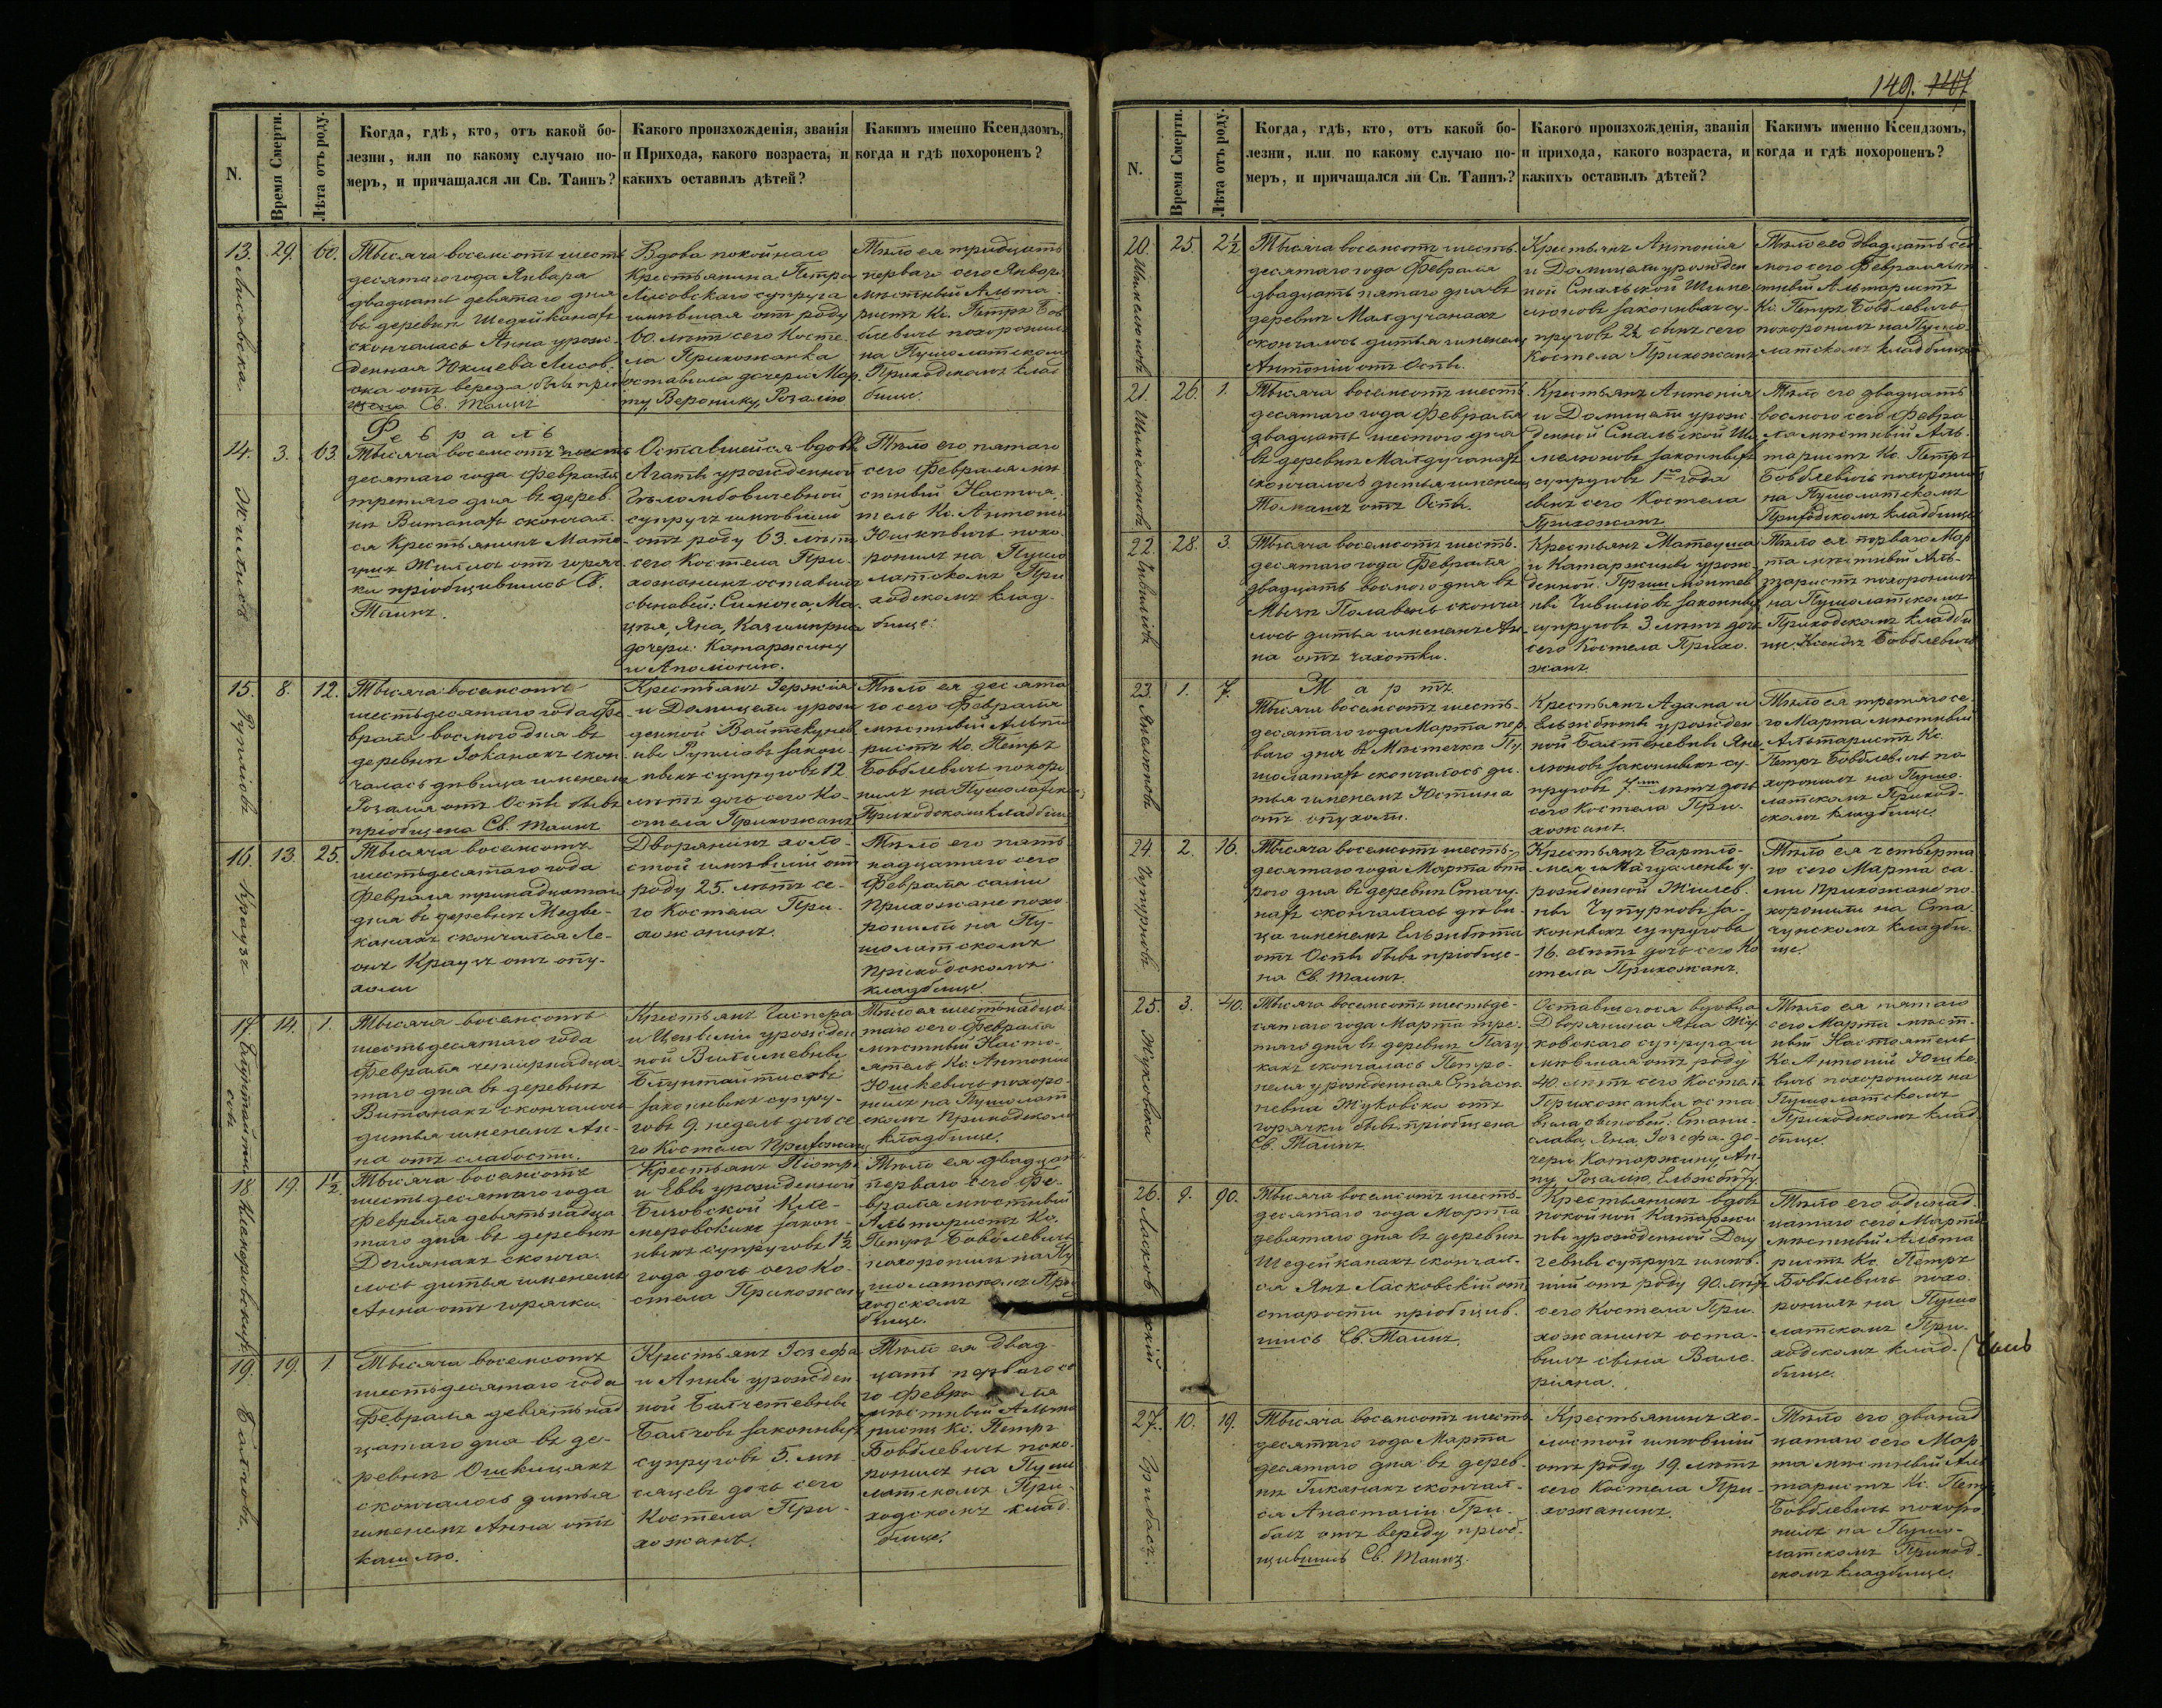 149. 147
N.
Время Смерти.
Лѣта отъ роду.
Когда, гдѣ, кто, отъ какой бо-
лезни, или по какому случаю по-
меръ, и причащался ли Св. Таинъ?
Какого произхожденія, званія
и Прихода, какого возраста, и
какихъ оставилъ дѣтей?
Какимъ именно Ксендзомъ,
когда и гдѣ похороненъ?
13.
29.
60.
Тысяча восемсотъ шесть
десятаго года Января
двадцать девятаго дня
въ деревнѣ Шедейканахъ
скончалась Анна урож-
денная
отъ вереда бывъ прі
щена Св. Таинъ
Вдова покойнаго
Крестьянина Петра
Лисовскаго супруга
имѣвшая отъ роду
60. лѣтъ сего Косте-
ла Прихожанка
оставила дочери Мар
ту, Веронику, Розалію
Тѣло ея тридцать
перваго сего Январ
мѣстный Альта-
ристъ Кс. Петръ Боб
блевичь похоронилъ
на Пушолатскомъ
Приходскомъ клад
бище.
Февраль
14.
3.
63.
Жилисъ
Тысяча восемсотъ шесть
десятаго года Февраля
третяго дня въ дерев-
нѣ Витанахъ скончал-
ся Крестьянинъ Мате-
ушъ Жилисъ отъ горяч
ки пріобщившись Св.
Таинъ.
Оставшейся вдовѣ
Агатѣ урожденной
супругъ имѣвшій
отъ роду 63. лѣтъ
сего Костела При-
хожанинъ оставилъ
сыновей: Симона, Ма-
цея, Яна, Казимира
дочери: Катаржину
и Аполонію.
Тѣло его пятаго
сего Февраля мѣ
стный Настоя-
тель Кс. Антоній
Юшкевичь похо-
ронилъ на Пушо
латскомъ При
ходскомъ клад-
бище.
15.
8.
12.
Рупловъ
Тысяча восемсотъ
шестьдесятаго года Фе-
враля восьмого дня въ
деревнѣ Іоканахъ скон
чалась дѣвица именемъ
Розалія отъ Оспы бывъ
пріобщена Св. Таинъ
Крестьянъ Іержія
и Домицели урож
денной Войткунев
ны Рупловъ закон-
ныхъ супруговъ 12.
лѣтъ дочь сего Ко-
стела Прихожанъ
Тѣло ея десята
го сего Февраля
мѣстный Альта
ристъ Кс. Петръ
Бобблевичь похоро
нилъ на Пушолатском
Приходскомъ кладбище
16.
13.
25.
Краузъ
Тысяча восемсотъ
шестьдесятаго года
Февраля тринадцатаго
дня въ деревнѣ Медве-
канахъ скончался Ле-
онъ Краузъ отъ опу-
холи
Дворянинъ холо-
стой имѣвшій отъ
роду 25. лѣтъ се-
го Костела При-
хожанинъ.
Тѣло его пять
надцатаго сего
Февраля сами
Прихожане похо-
ронили на Пу-
шолатскомъ
Приходскомъ
кладбище.
17.
14.
1.
Тысяча восемсотъ
шестьдесятаго года
Февраля четырнадца-
таго дня въ деревнѣ
Витанахъ скончалось
дитья именемъ Ан-
на отъ слабости.
Крестьянъ Гаспера
и Цецыліи урожден
ной
законныхъ супру-
говъ 9. недель дочь се
го Костела Прихожанъ
Тѣло ея шестьнадца
таго сего Февраля
мѣстный Насто-
ятель Кс. Антоній
Юшкевичь похоро-
нилъ на Пушолат
скомъ Приходскомъ
кладбище.
18.
19.
1½.
Клемеровскихъ
Тысяча восемсотъ
шестьдесятаго года
Февраля девятьнадца
таго дня въ деревнѣ
сконча-
лось дитья именемъ
Анна отъ горячки.
Крестьянъ Піотра
и Евы урожденной
Кле-
меровскихъ закон-
ныхъ супруговъ 1½
года дочь сего Ко-
стела Прихожанъ
Тѣло ея двадцать
перваго сего Фе-
враля мѣстный
Альтаристъ Кс.
Петръ Бобблевичь
похоронилъ на Пу
шолатскомъ При
ходскомъ
бище.
19.
19.
1.
Балчовъ.
Тысяча восемсотъ
шестьдесятаго года
Февраля девятьнад
цатаго дня въ де-
ревнѣ Ошкицяхъ
скончалось дитья
именемъ Анна отъ
кашлю.
Крестьянъ Іозефа
и Анны урожден
ной
Балчовъ законныхъ
супруговъ 5. мѣ-
сяцевъ дочь сего
Костела При-
хожанъ.
Тѣло ея двад-
цать перваго се
го Февраля
мѣстный Альта
ристъ Кс. Петръ
Бобблевичь похо-
ронилъ на Пушо
латскомъ При-
ходскомъ клад-
бище.
N.
Время Смерти.
Лѣта отъ роду.
Когда, гдѣ, кто, отъ какой бо-
лезни, или по какому случаю по-
меръ, и причащался ли Св. Таинъ?
Какого произхожденія, званія
и прихода, какого возраста, и
какихъ оставилъ дѣтей?
Какимъ именно Ксендзомъ,
когда и гдѣ похороненъ?
20.
25.
2½
Шимелюновъ
Тысяча восемсотъ шесть-
десятаго года Февраля
двадцать пятаго дня въ
деревнѣ Малдучанахъ
скончалось дитья именемъ
Антоній отъ Оспы.
Крестьянъ Антонія
и Домицели урожден
ной Смальской Шиме
люновъ законныхъ су-
пруговъ 2½ сынъ сего
Костела Прихожанъ
Тѣло его двадцать сед
мого сего Февраля мѣ-
стный Альтаристъ
Кс. Петръ Бобблевичь
похоронилъ на Пушо-
латскомъ кладбище
21.
26.
1.
Шимелюновъ
Тысяча восемсотъ шесть
десятаго года Февраля
двадцать шестого дня
въ деревнѣ Малдучанахъ
скончалось дитья именемъ
Томашъ отъ Оспы.
Крестьянъ Антонія
и Домицели урож-
денной Смальской Ши
мелюновъ законныхъ
супруговъ 1го года
сынъ сего Костела
Прихожанъ.
Тѣло его двадцать
восмого сего Февра
ля мѣстный Аль-
таристъ Кс. Петръ
Бобблевичь похоронилъ
на Пушолатскомъ
Приходскомъ кладбище
22.
28.
3.
Чивилисъ
Тысяча восемсотъ шесть-
десятаго года Февраля
двадцать восмого дня въ
Мызѣ Полавень сконча
лось дитья именемъ Ан-
на отъ чахотки.
Крестьянъ Матеуша
и Катаржины урож-
денной
ны Чивилисовъ законныхъ
супруговъ 3 лѣтъ дочь
сего Костела Прихо-
жанъ.
Тѣло ея перваго Мар
та мѣстный Аль-
таристъ похоронилъ
на Пушолатскомъ
Приходскомъ кладби
ще. Ксендзъ Бобблевичь
23.
1.
7.
Янелюновъ
Мартъ
Тысяча восемсотъ шесть-
десятаго года Марта пер
ваго дня въ Мѣстечкѣ Пу
шолатахъ скончалось ди-
тья именемъ Юстина
отъ опухоли.
Крестьянъ Адама и
Ельжбѣты урожден
ной Балтеневны Яне
люновъ законныхъ су-
пруговъ 7ми лѣтъ дочь
сего Костела При-
хожанъ.
Тѣло ея третяго се
го Марта мѣстный
Альтаристъ Кс.
Петръ Бобблевичь по
хоронилъ на Пушо-
латскомъ Приход-
скомъ кладбище.
24.
2.
16.
Чупурновъ
Тысяча восемсотъ шесть-
десятаго года Марта вто
рого дня въ деревнѣ Стачу-
нахъ скончалась дѣви-
ца именемъ Ельжбѣта
отъ Оспы бывъ пріобще-
на Св. Таинъ.
Крестьянъ Бартло-
мея и Магдалены у-
рожденной Жилев-
ны Чупурновъ за-
конныхъ супруговъ
16. лѣтъ дочь сего Ко
стела Прихожанъ.
Тѣло ея четверта
го сего Марта са-
ми Прихожане по-
хоронили на Ста-
чунскомъ кладби-
ще.
25.
3.
40.
Жуковска
Тысяча восемсотъ шестьде-
сятаго года Марта тре-
тяго дня въ деревнѣ
скончалась Петро-
неля урожденная
Жуковска отъ
горячки бывъ пріобщена
Св. Таинъ
Оставшегося вдовца
Дворянина Яна Жу-
ковскаго супруга и
мѣвшая отъ роду
40. лѣтъ сего Костела
Прихожанка оста
вила сыновей: Стани-
слава, Яна, Іозефа до-
чери, Катаржину, Ан-
ну, Розалію, Ельжбѣту
Тѣло ея пятаго
сего Марта мѣст-
ный Настоятель
Кс. Антоній Юшке-
вичь похоронилъ на
Пушолатскомъ
Приходскомъ клад
бище.
26.
9.
90.
Ласковскій
Тысяча восемсотъ шесть-
десятаго года Марта
девятаго дня въ деревнѣ
Шедейканахъ скончал-
ся Янъ Ласковскій отъ
старости пріобщив-
шись Св. Таинъ.
Крестьянинъ вдовъ
покойной Катаржи
ны урожденной
супругъ имѣв-
шій отъ роду 90. лѣтъ
сего Костела При-
хожанинъ оста-
вилъ сына Вале-
ріяна.
Тѣло его одинад
цатаго сего Марта
мѣстный Альта
ристъ Кс. Петръ
Бобблевичь похо-
ронилъ на Пушо
латскомъ При-
ходскомъ клад-
бище.
27.
10.
19.
Грибасъ.
Тысяча восемсотъ шесть
десятаго года Марта
десятаго дня въ дерев-
нѣ Гиканахъ скончал-
ся Анастасій Гри-
басъ отъ вереду пріоб-
щившись Св. Таинъ.
Крестьянинъ хо-
лостой имѣвшій
отъ роду 19. лѣтъ
сего Костела При-
хожанинъ.
Тѣло его дванад
цатаго сего Мар
та мѣстный Аль
таристъ Кс. Петръ
Бобблевичь похоро
нилъ на Пушо-
латскомъ Приход-
скомъ кладбище.